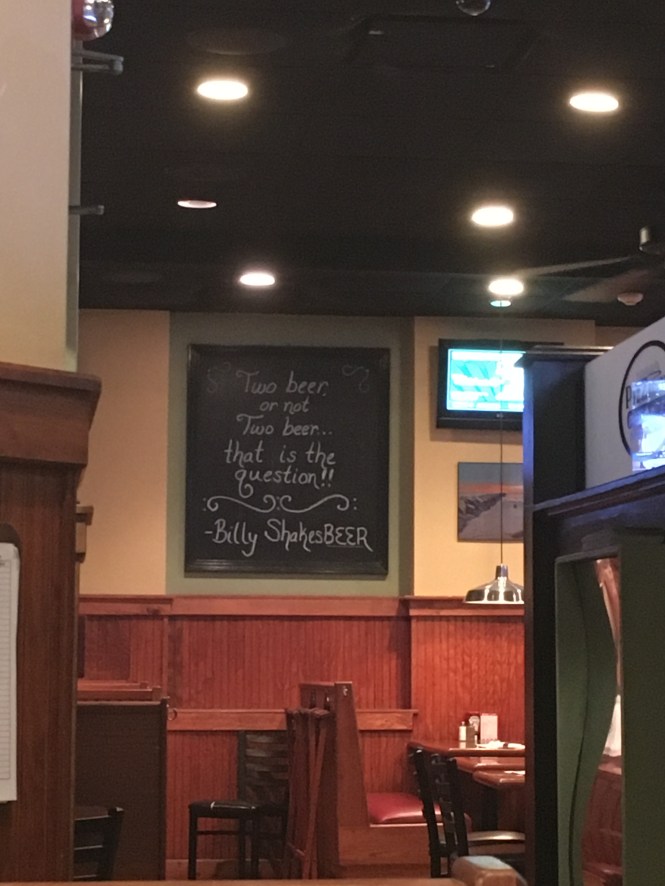 Two beer
or not
Two beer...
that is the
question!!
-Billy ShakesBEER